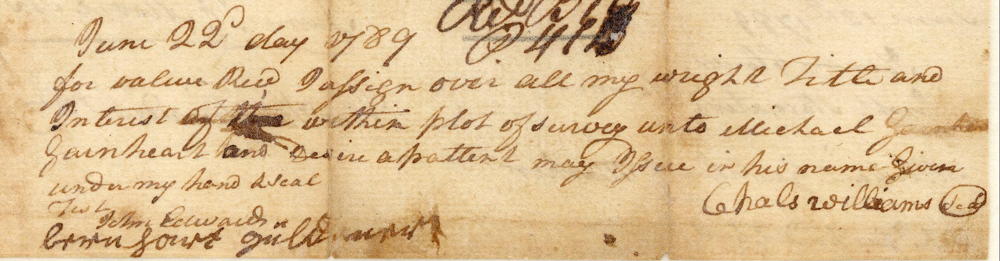 June 22d day 1789
for value Recd I assign over all my wright Title and
Interest of the within plot of survey unto Michael
Gainheart and Desire a pattent may Issue in his name Given
under my hand & seal
Chals Williams Seal
Test
John Edwards